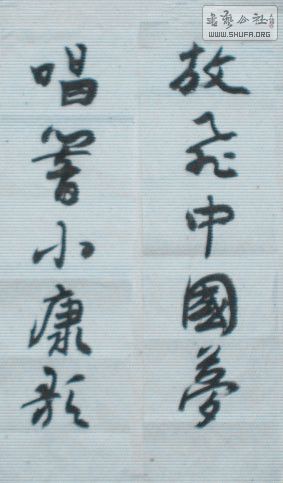 放飛中國夢
唱響小康歌
書藝公社
WWW.SHUFA.ORG